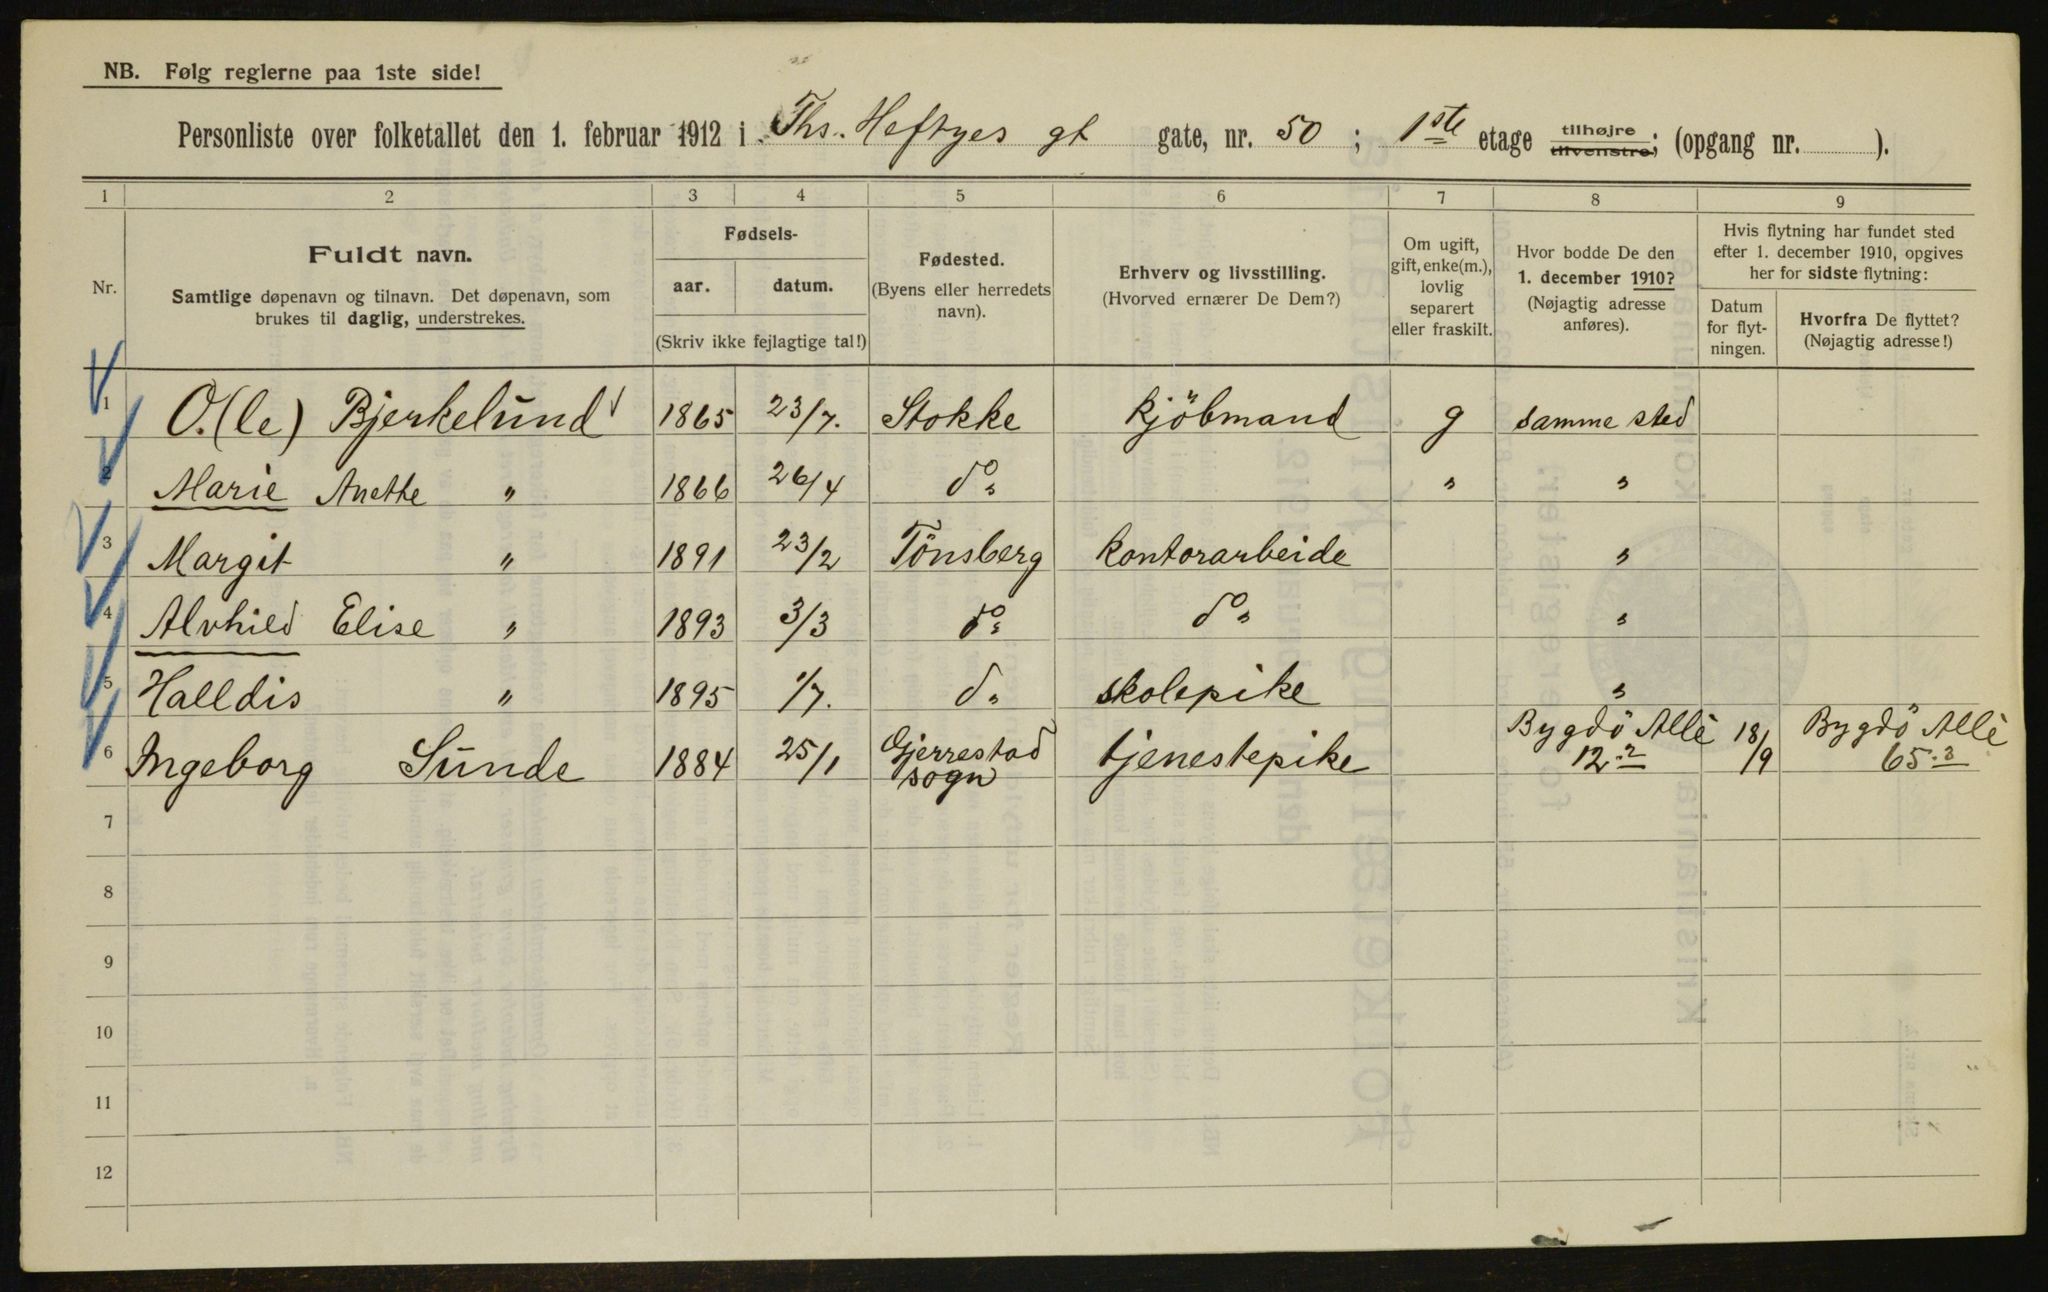 NB. Følg reglerne paa 1ste side!
Personliste over folketallet den 1. februar 1912 i Ths. Heftyes gt gate, nr. 50 ; 1ste etage tilhøjre tilvenstre; (opgang nr. ).
1 2 3 4 5 6 7 8 9
Nr.
Fuldt navn.
Samtlige døpenavn og tilnavn. Det døpenavn, som
brukes til daglig, understrekes.
Fødsels-
aar. datum.
(Skriv ikke fejlagtige tal!)
Fødested.
(Byens eller herredets
navn).
Erhverv og livsstilling.
(Hvorved ernærer De Dem?)
Om ugift,
gift, enke(m.),
lovlig
separert
eller fraskilt.
Hvor bodde De den
1. december 1910?
(Nøjagtig adresse
anføres).
Hvis flytning har fundet sted
efter 1. december 1910, opgives
her for sidste flytning:
Datum
for flyt-
ningen.
Hvorfra De flyttet?
(Nøjagtig adresse!)
1 O.(le) Bjerkelund 1865 23/7. Stokke kjöbmand g samme sted
2 Marie Anette " 1866 26/4 do " "
3 Margit " 1891 23/2 Tönsberg kontorarbeide "
4 Alvhild Elise " 1893 3/3 do do "
5 Halldis " 1895 1/7. d" skolepike "
6 Ingeborg Sunde 1884 25/1 Gjerrestad sogn tjenestepike Bygdö Allè 12.2 18/9 Bygdö Allè 65.3
7
8
9
10
11
12